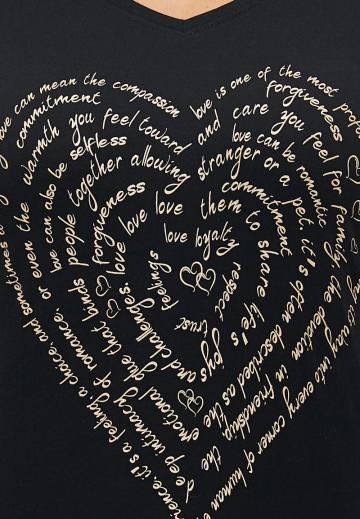 love can mean the compassion
commitment
warmth you feel toward
love can also be selfless
people together allowing
forgiveness
love love love
love is one of the most
forgiveness
and care you
love can be romantic
you feel for family, the devotion in friendship
stranger or a pet. it's often described as the
commitment
them to share life's joys and challenges
love loyalty
respect
trust
feelings
way into every corner of human
sometimes a choice and
it's a feeling, a choice and sometimes
or even the
of romance.
deep intimacy
emotional glue that binds